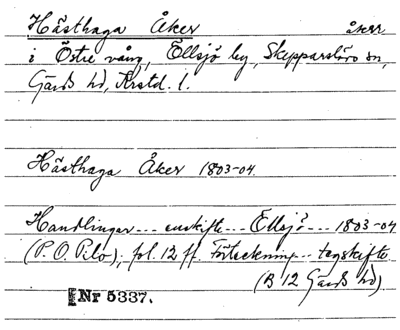 Hästhaga Åker åker
i Östre vång, Ellsjö by, Skepparslövs sn,
Gärds hd, Krstd. l.
Hästhaga Åker 1803-04.
Handlingar --- enskifte -- Ellsjö --- 1803-04
(P. O. Pilo); fol. 12 ff. Förteckning -- tegskifte
(B 12 Gärds hd)
Nr 5337.